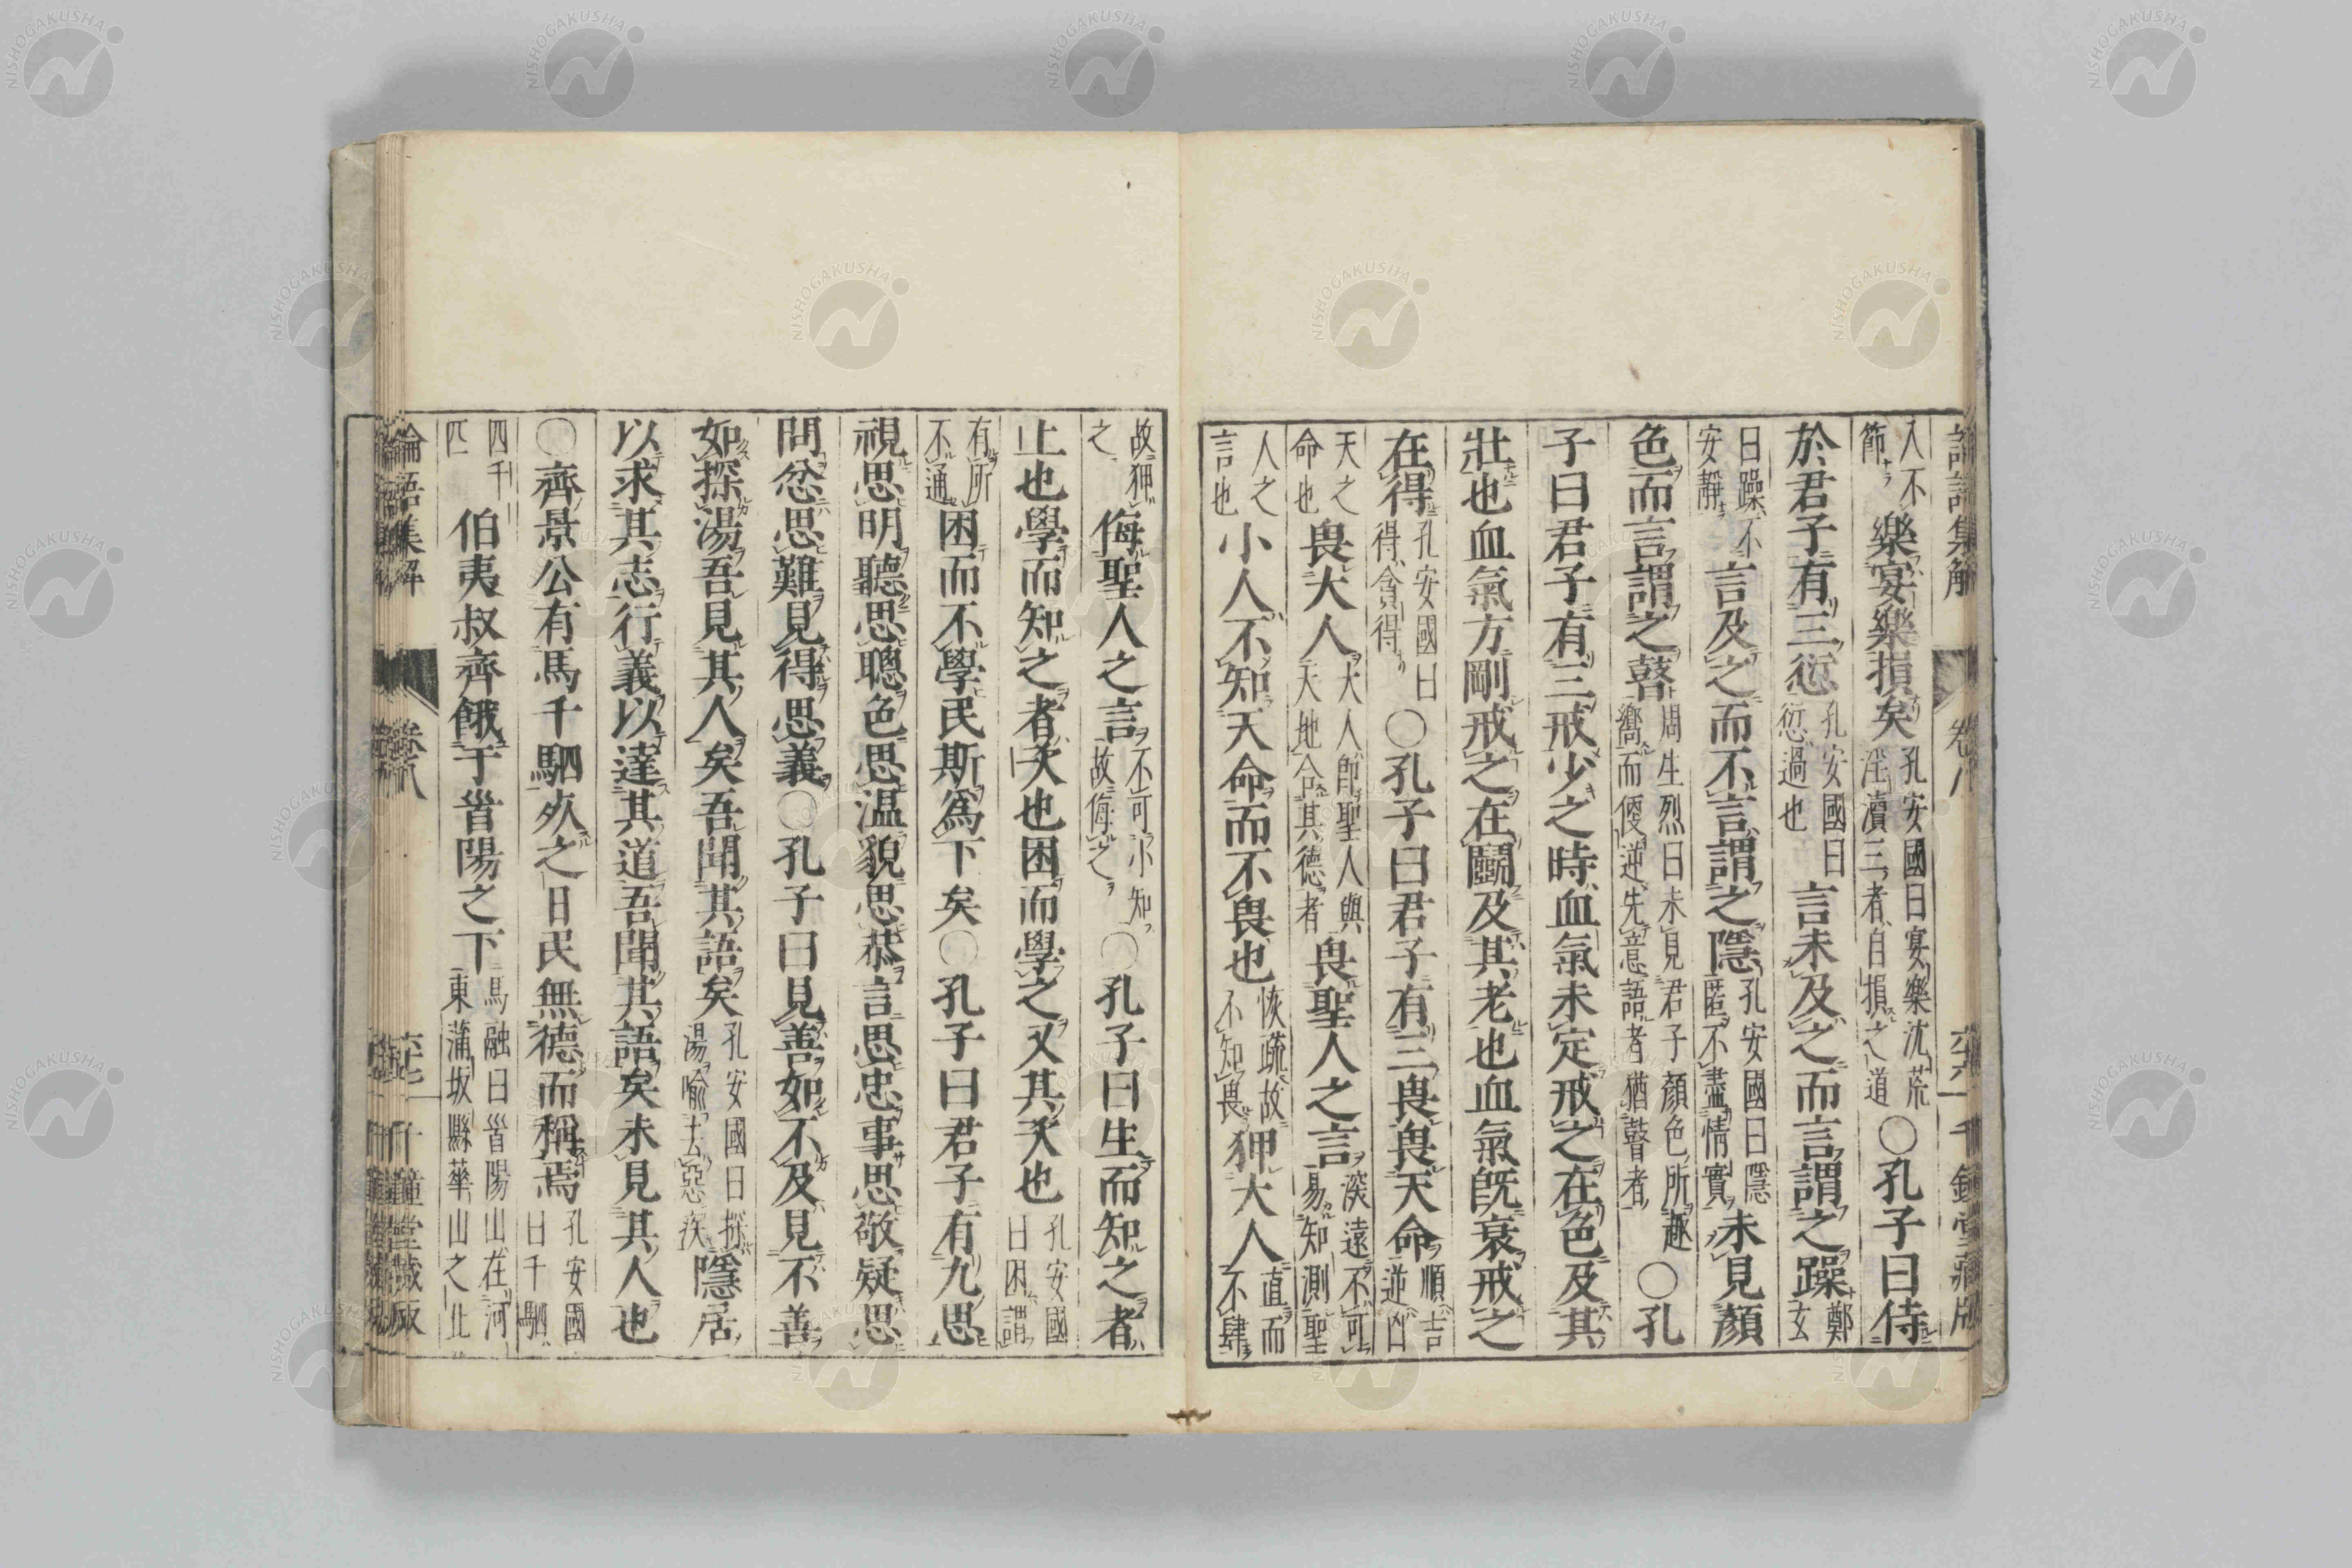 論語集解 卷八 千鍾堂藏版
入不節樂宴樂損矣孔安國曰宴樂沈荒淫瀆三者自損之道〇孔子曰侍
於君子有三愆孔安國曰愆過也言未及之而言謂之躁鄭玄
曰躁不安靜言及之而不言謂之隱孔安國曰隱匿不盡情實未見顏
色而言謂之瞽周生烈曰未見君子顏色所趣嚮而便逆先意語者猶瞽者〇孔
子曰君子有三戒少之時血氣未定戒之在色及其
壯也血氣方剛戒之在鬭及其老也血氣既衰戒之
在得孔安國曰得貪得〇孔子曰君子有三畏畏天命順吉逆凶
天之命也畏大人大人即聖人與天地合其德者畏聖人之言深遠不可易知測聖
人之言也小人不知天命而不畏也恢疏故不知畏狎大人直而不肆
故狎之侮聖人之言不可小知故侮之〇孔子曰生而知之者
上也學而知之者次也困而學之又其次也孔安國曰困謂
有所不通困而不學民斯爲下矣〇孔子曰君子有九思
視思明聽思聰色思温貌思恭言思忠事思敬疑思
問忿思難見得思義〇孔子曰見善如不及見不善
如探湯吾見其人矣吾聞其語矣孔安國曰探湯喻去惡疾隱居
以求其志行義以達其道吾聞其語矣未見其人也
〇齊景公有馬千駟死之日民無德而稱焉孔安國曰千駟
四千匹伯夷叔齊餓于首陽之下馬融曰首陽山在河東蒲坂縣華山之北
論語集解 卷八 千鍾堂藏版